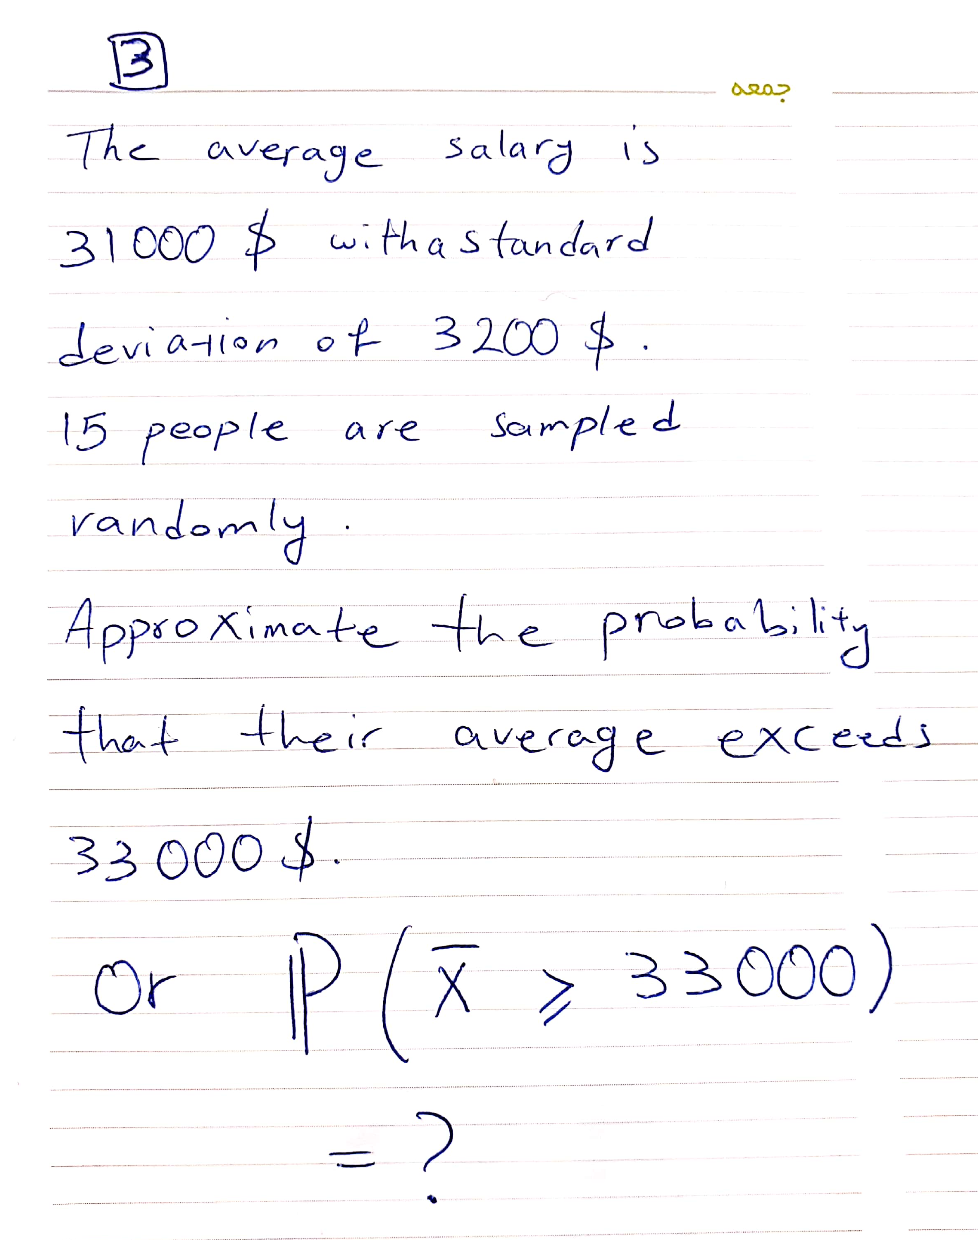 3
جمعه
The average salary is
31000 $ with a standard
deviation of 3200 $.
15 people are sampled
randomly.
Approximate the probability
that their average exceeds
33000 $.
Or ℙ(X̄ ⩾ 33000)
= ?